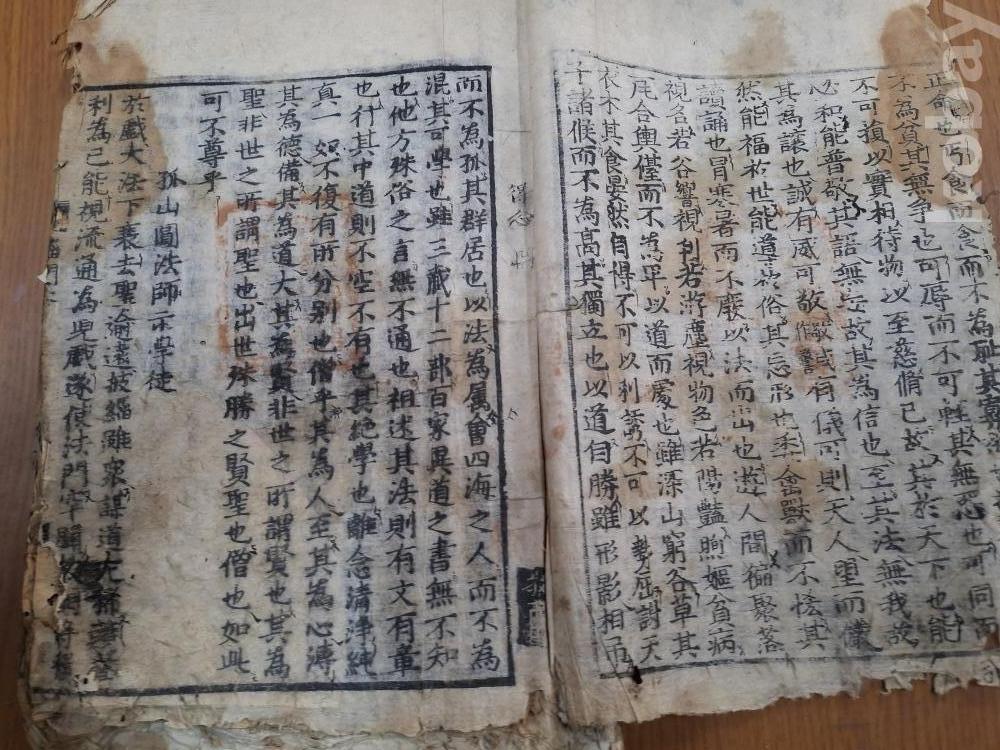 正命也丐食而食而不為耻其寡
不為貧其無爭也可辱而不可輕其無怨也可同而
不可損以實相待物以至慈脩己故其於天下也能
必和能普敬其語無妄故其為信也至其法無我故
其為讓也誠有威可敬有儀可則天人望而儼
然能福於世能導於俗其忘形也委禽獸而不悋其
讀誦也冒寒暑而不廢以法而出也遊人間徧聚落
視名若谷響視利若游塵視物色若陽豔煦嫗貧病
瓦合輿儓而不為卑以道而處也雖深山窮谷草其
衣木其食晏然自得不可以利誘不可以勢屈謝天
子諸候而不為高其獨立也以道自勝雖形影相弔
得心
而不為孤其群居也以法為属會四海之人而不為
混其可學也雖三藏十二部百家異道之書無不知
也他方殊俗之言無不通也祖述其法則有文有章
也行其中道則不空不有也其絕學也離念清淨純
真一如不復有所分别也僧乎其為人至其為心溥
其為德備其為道大其為賢非世之所謂賢也其為
聖非世之所謂聖也出世殊勝之賢聖也僧也如此
可不尊乎
孤山圓法師示學徒
於戲大法下衰去聖逾遠披緇雖眾謀道尤稀競聲
利為己能視流通為兒戲遂使法門罕闢
kobay